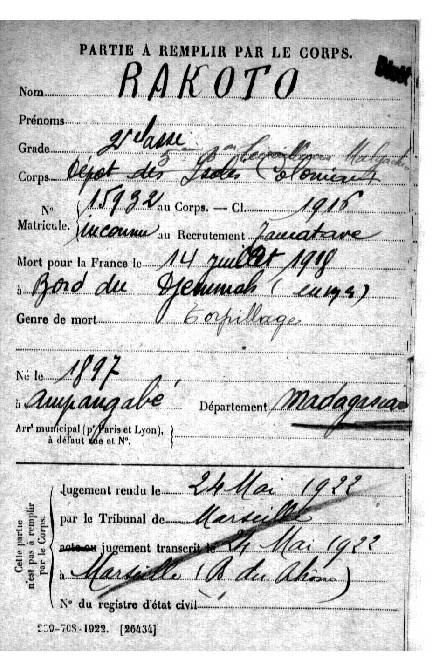 PARTIE À REMPLIR PAR LE CORPS.
Dépôt
Nom RAKOTO
Prénoms
Grade 2e classe
3 Bataillon Malgache
Corps Dépôt des Isolés Coloniaux
N° 15932 au Corps. — Cl. 1916
Matricule. inconnu au Recrutement Tamatave
Mort pour la France le 14 juillet 1918
à Bord du Djemnah (en mer)
Genre de mort Torpillage
Né le 1897
à Ampangabé Département Madagascar
Arrt municipal (pr Paris et Lyon),
à défaut rue et N°.
Cette partie
n'est pas à remplir
par le Corps.
Jugement rendu le 24 Mai 1922
par le Tribunal de Marseille
acte ou jugement transcrit le 24 Mai 1922
à Marseille (B. du Rhône)
N° du registre d'état civil
-708-1922. [26434]